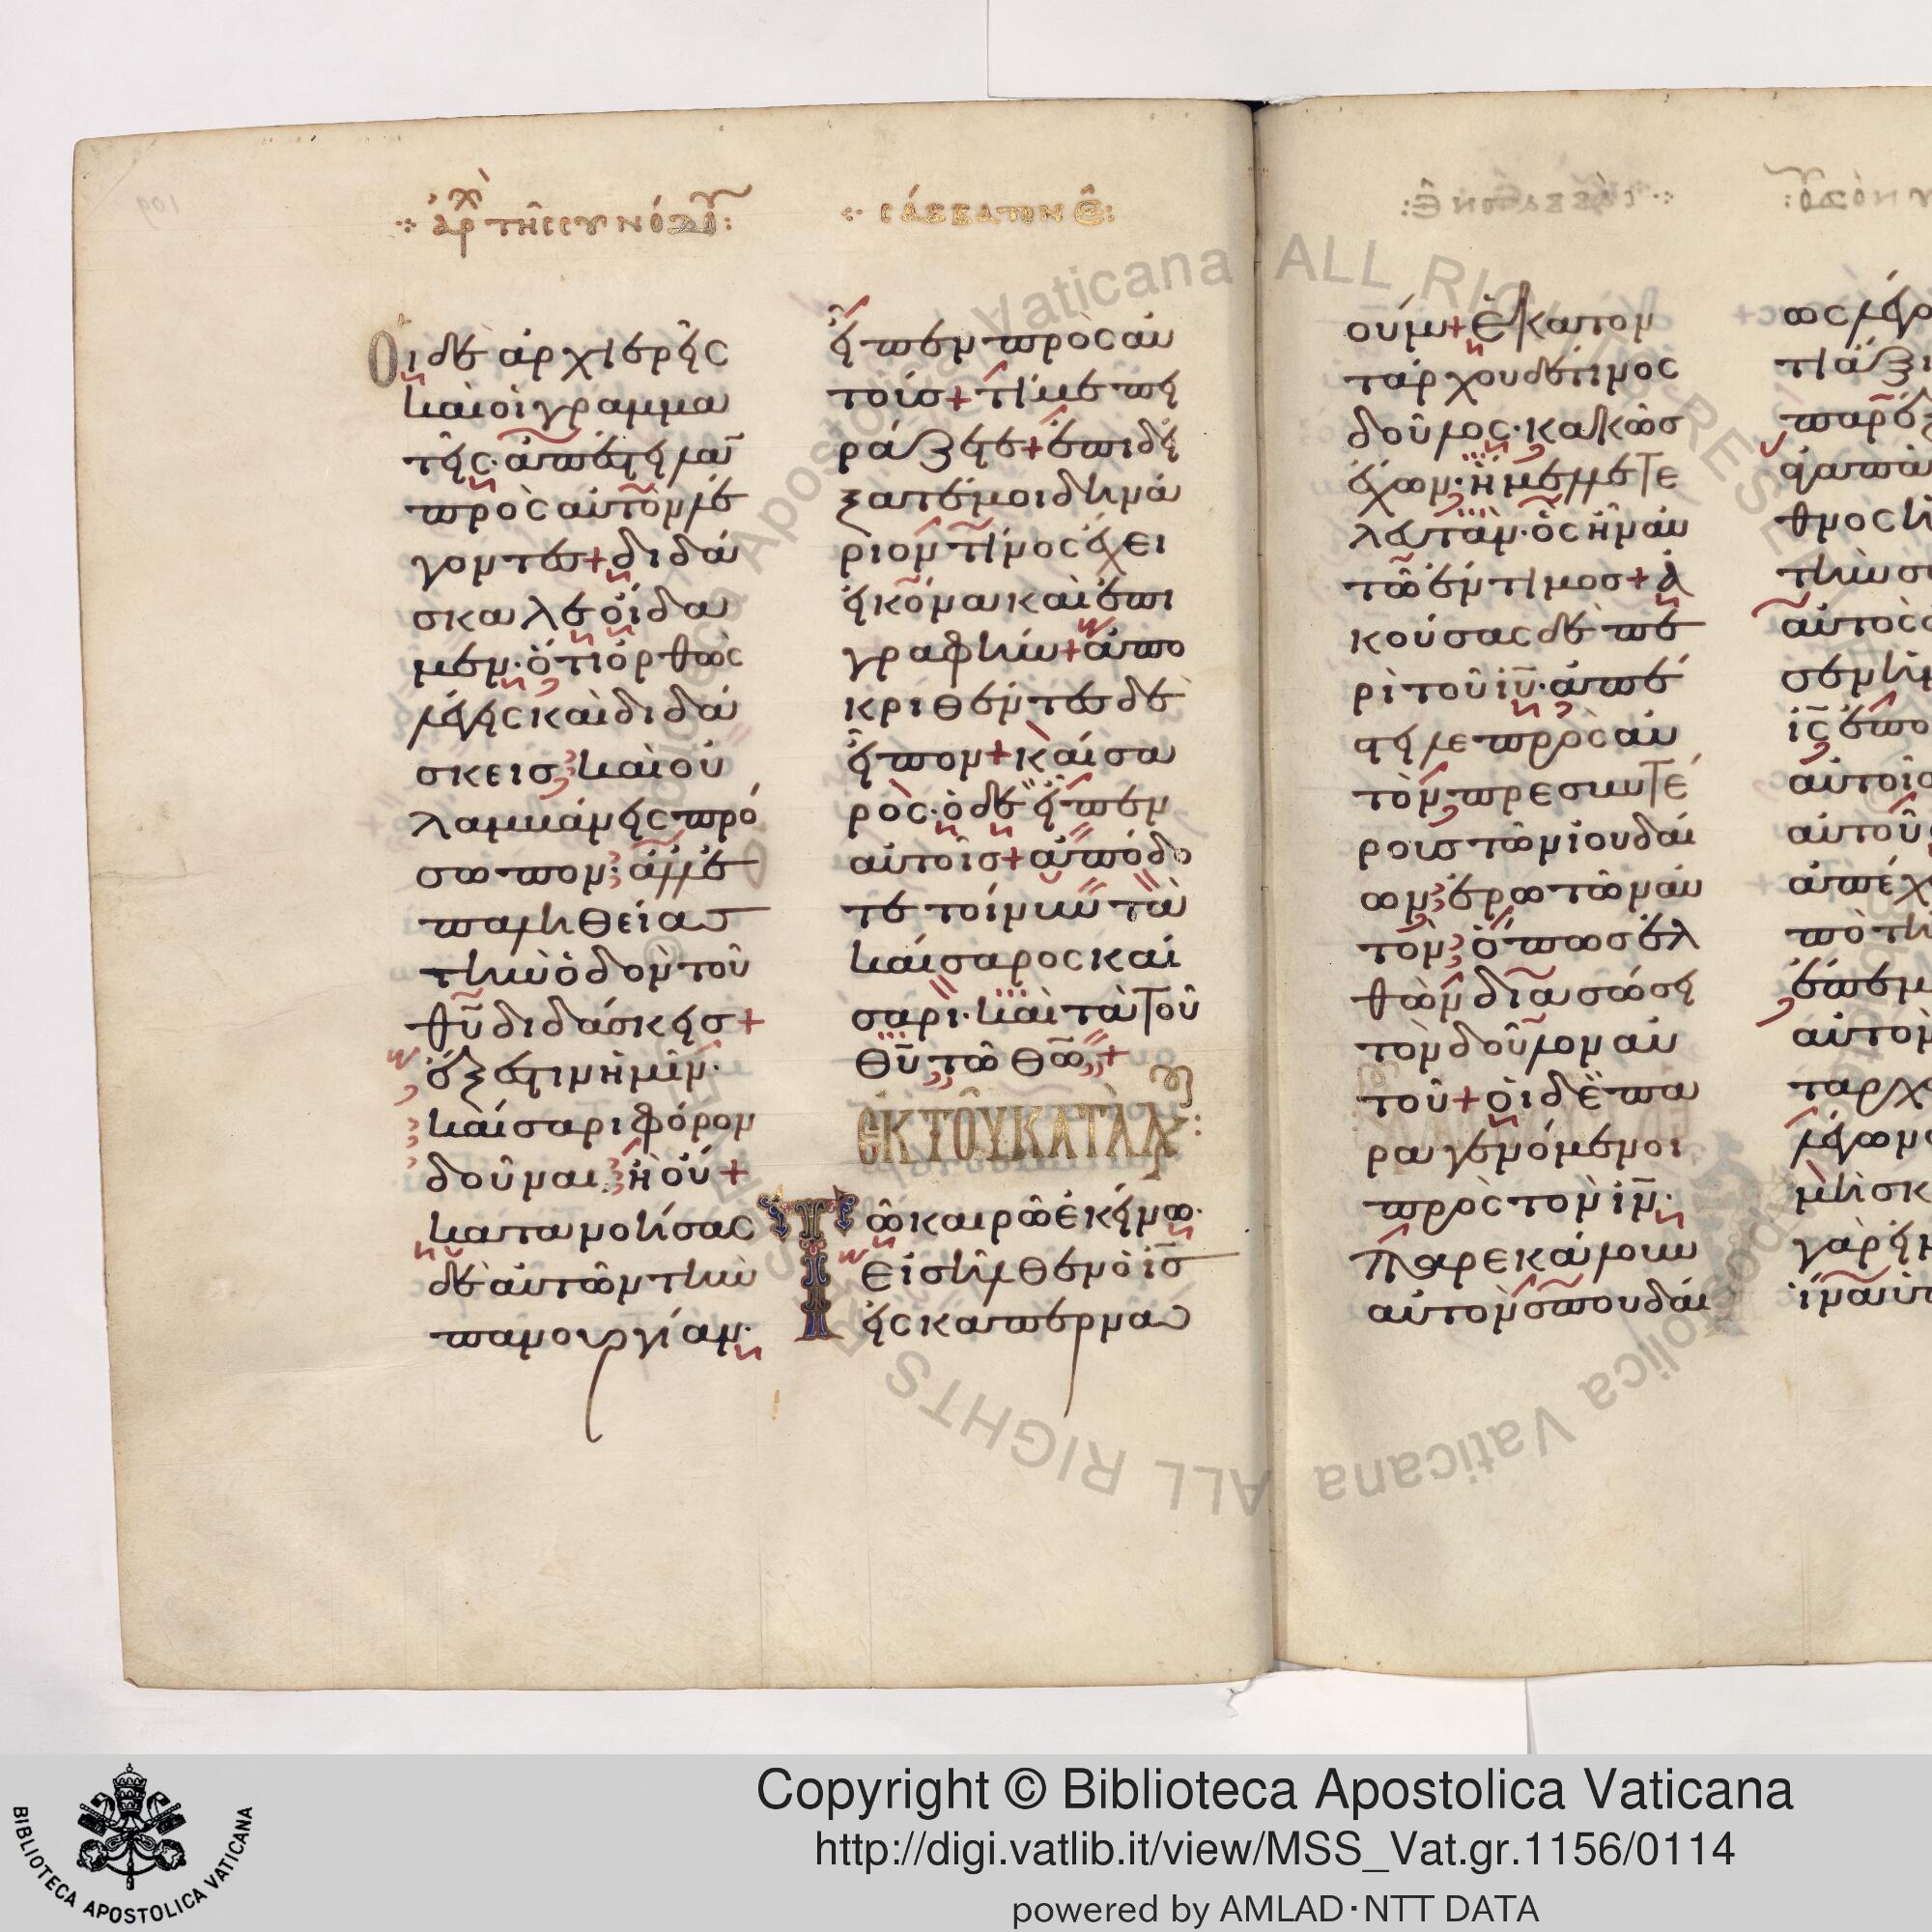 ἀρχ τῆς συνόδου
σαββάτων θ
Οἱ δὲ ἀρχιερεῖς
καὶ οἱ γραμμα
τεῖς· ἀπέστειλαν
πρὸς αὐτὸν λέ
γοντες + διδά
σκαλε οἴδα
μεν· ὅτι ὀρθῶς
λέγεις καὶ διδά
σκεις καὶ οὐ
λαμβάνεις πρό
σωπον· ἀλλ' ἐ
π' ἀληθείας
τὴν ὁδὸν τοῦ
θυ διδάσκεις +
ἔξεστιν ἡμῖν·
καίσαρι φόρον
δοῦναι ἢ οὔ +
κατανοήσας
δὲ αὐτῶν τὴν
πανουργίαν·
εἶπεν πρὸς αὐ
τούς + τί με πει
ράζετε + ἐπιδεί
ξατέ μοι δηνά
ριον τίνος ἔχει
εἰκόνα καὶ ἐπι
γραφήν + ἀπο
κριθέντες δὲ
εἶπον + καίσα
ρος· ὁ δὲ εἶπεν
αὐτοῖς + ἀπόδο
τε τοίνυν τὰ
καίσαρος καί
σαρι· καὶ τὰ τοῦ
θυ τῷ θω +
ἐκ τοῦ κατὰ Λκ
Τῷ καιρῷ ἐκείνῳ·
εἰσῆλθεν ὁ ις
εἰς καπερνα
ούμ + ἑκατον
τάρχου δέ τινος
δοῦλος· κακῶς
ἔχων· ἤμελλε τε
λευτᾶν· ὃς ἦν αὐ
τῷ ἔντιμος + ἀ
κούσας δὲ πε
ρὶ τοῦ ιυ· ἀπέ
στειλε πρὸς αὐ
τὸν πρεσβυτέ
ρους τῶν ἰουδαί
ων ἐρωτῶν αὐ
τὸν ὅπως ἐλ
θὼν διασώσῃ
τὸν δοῦλον αὐ
τοῦ + οἱ δὲ πα
ραγενόμενοι
πρὸς τὸν ιν·
παρεκάλουν
αὐτὸν σπουδαί
Copyright © Biblioteca Apostolica Vaticana
http://digi.vatlib.it/view/MSS_Vat.gr.1156/0114
powered by AMLAD·NTT DATA
BIBLIOTECA APOSTOLICA VATICANA